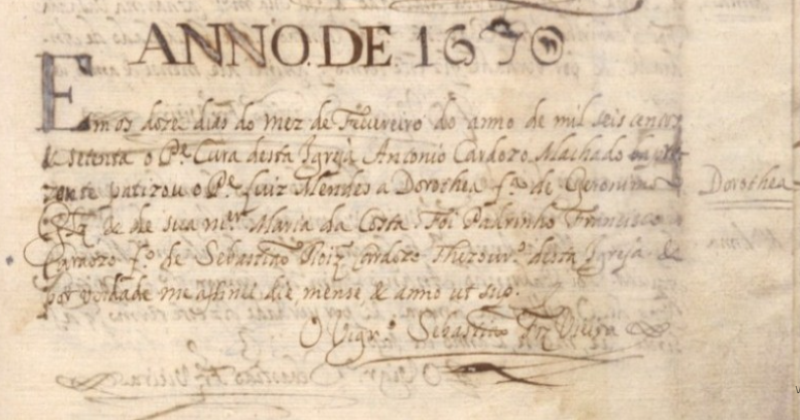 ANNO.DE 1670.
Em os doze dias do mez de Fevereiro do anno de mil seis centos
& setenta o P.e Cura desta Igreja Antonio Cardozo Machado
patizou o P.e Luiz Mendes a Dorothea f.a de Geronimo
Dorothea
& de sua m.er Maria da Costa Foi Padrinho Francisco
Cardozo f.o de Sebastiao Roiz Cardozo Thezour.o desta Igreja &
por verdade me assinei die mense & anno ut sup.
O Vigr.o Sebastiao Vieira